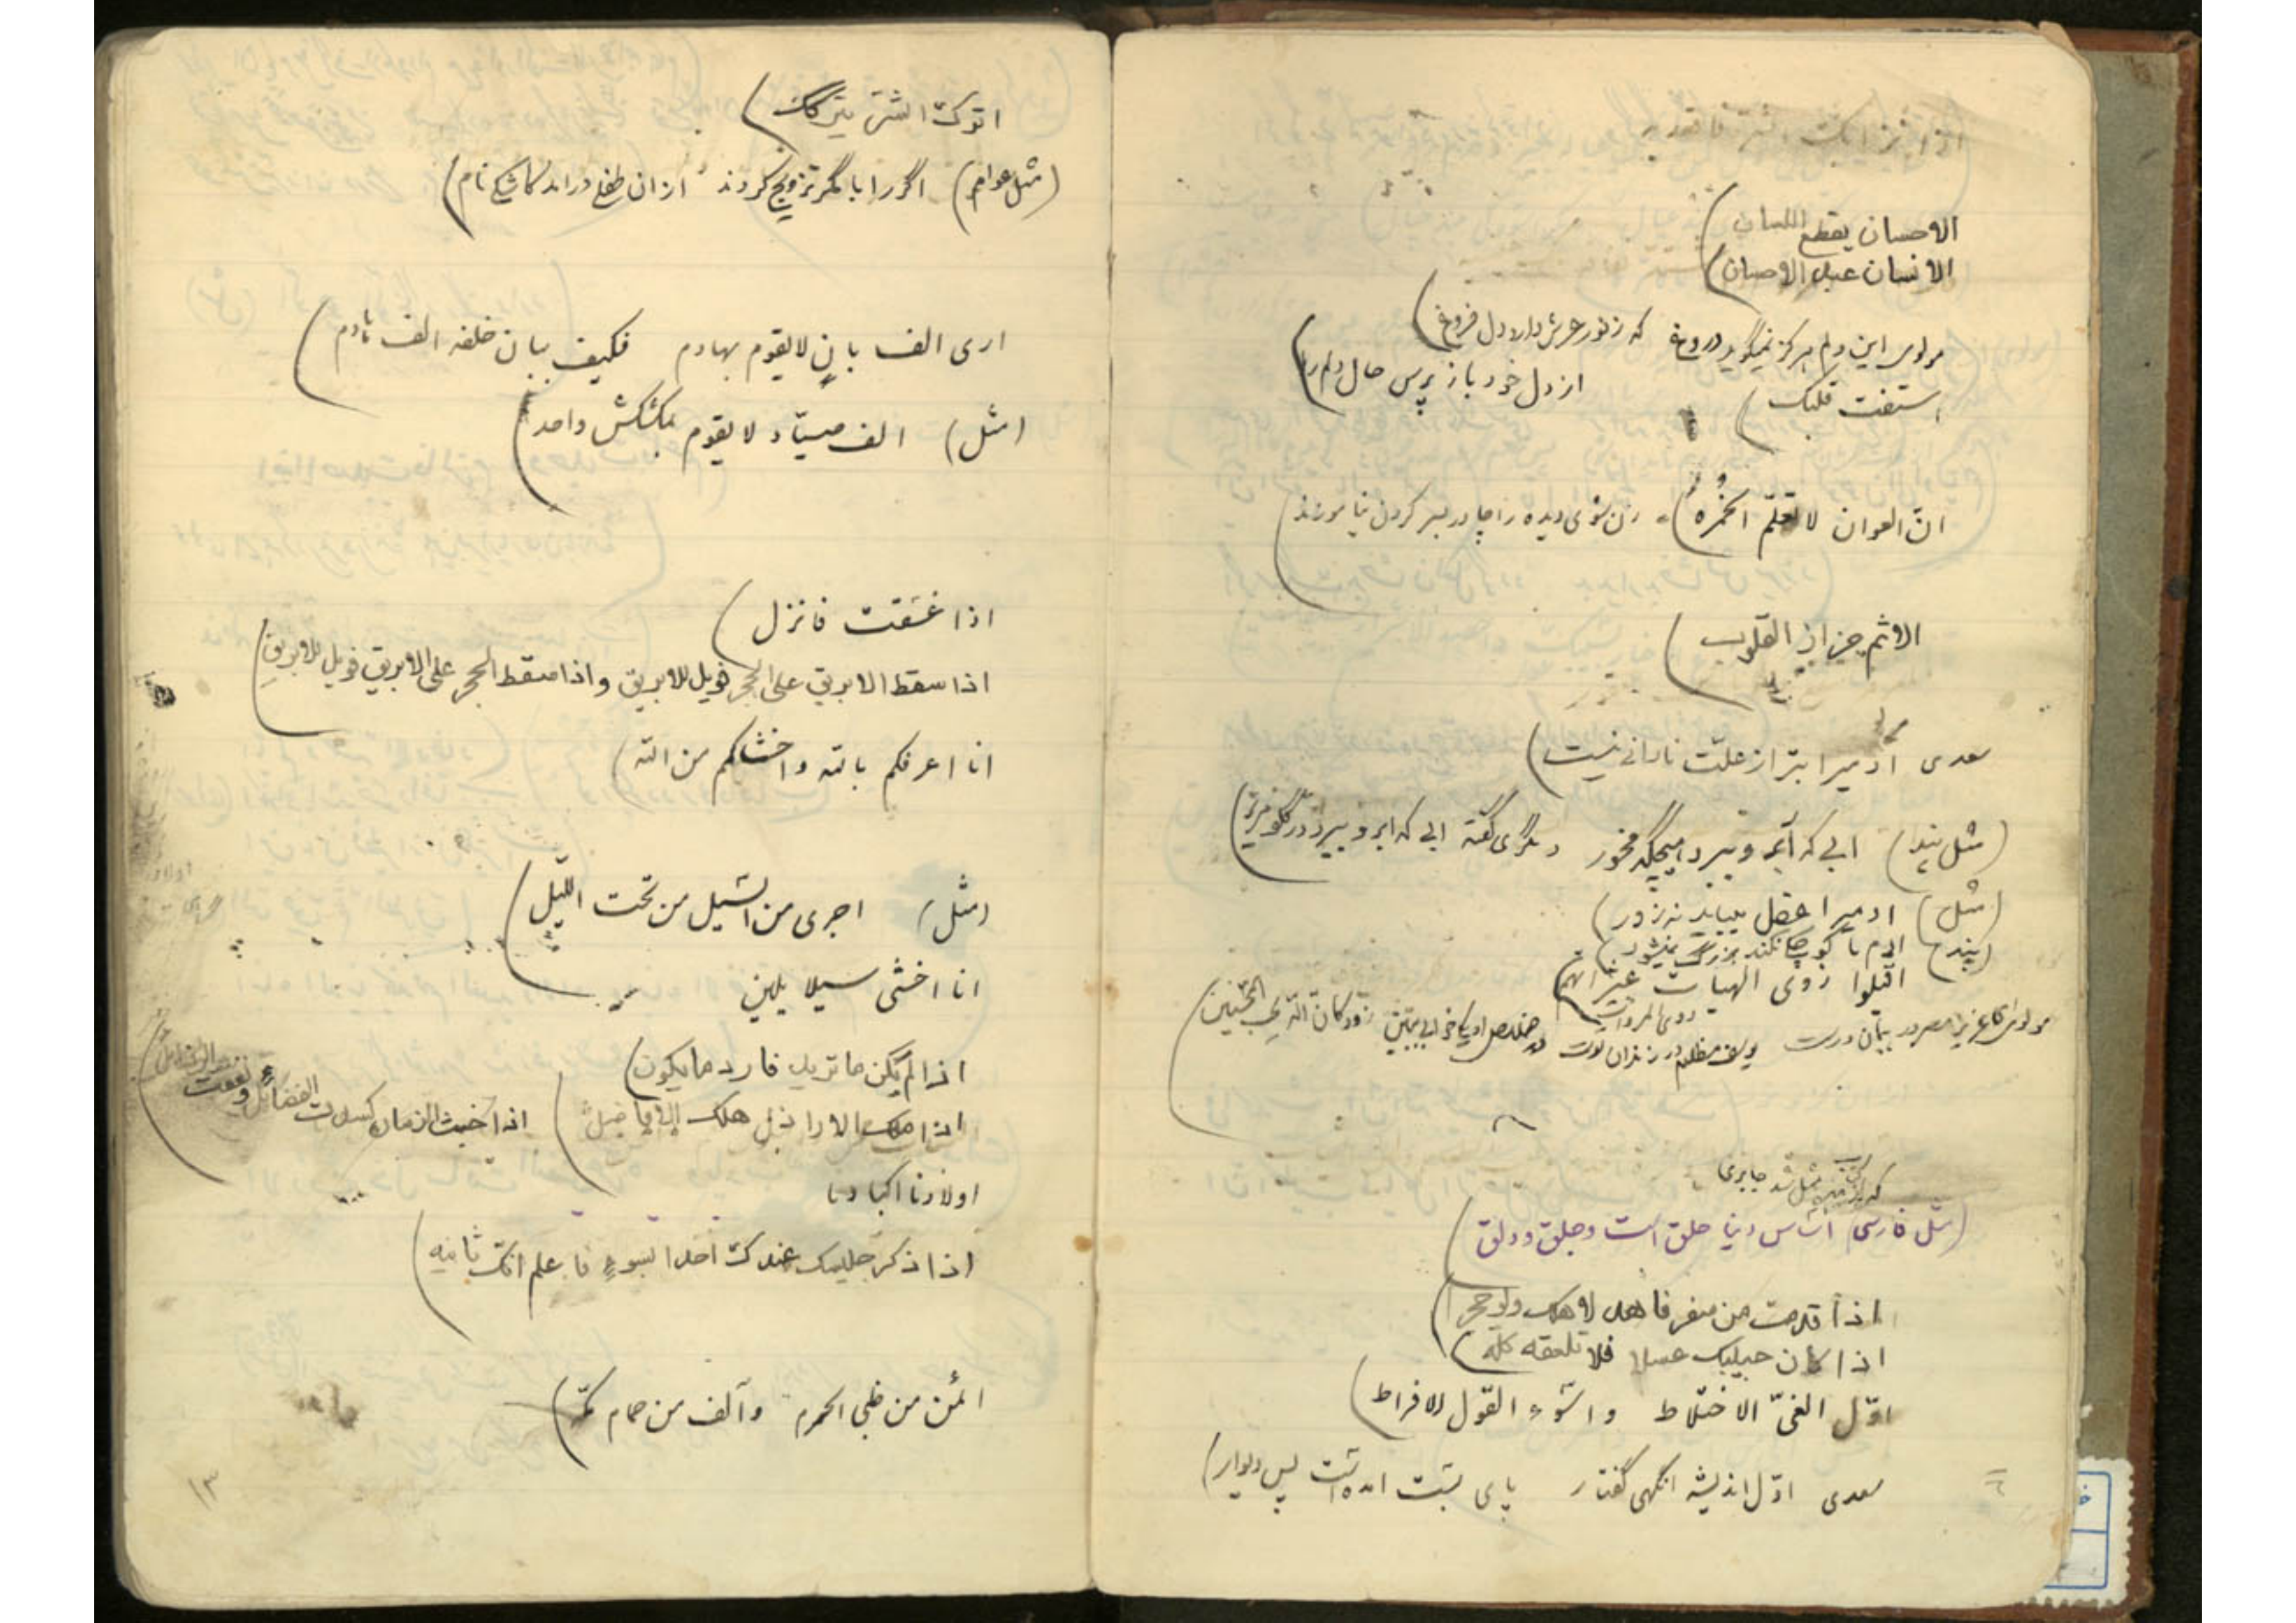 الاحسان يقطع اللسان
الانسان عبيد الاحسان
مولوی این دلم هرگز نمیگوید دروغ که ز نور عرش دارد دل فروغ
استفت قلبک از دل خود باز پرس حال دلم را
انّ العوان لا تعلّم الخُمْرَة زن شوی دیده را چادر بسر کردن نیاموزند
الاثم حزاز القلوب
سعدی آدمیرا بتر از علّت نادانی نیست
(مثل پند) ابی که آبرو ببرد مخور دیگری گفته ابی که ابرو ببرد در گلو مریز
(مثل) ادمیرا عقل بیباید نه زور
(پند) ادم تا کوچکی نکند بزرگ نمیشود
اقیلوا ذوی الهیات عثراتهم
ذوی المروات
یوسف مظلوم در زندان تست زود کان الله یحب المحسنین
(مثل فارسی) اساس دنیا حلق است و جلق و دلق
اذا قدمت من سفر فاهد لاهلک ولو حجر
اذا کان حبیبک عسلا فلا تلعقه کله
اوّل الغیّ الاختلاط و اسوء القول الافراط
سعدی اوّل اندیشه انگهی گفتار پای بست امده است پس دیوار
اترک الشرّ یترکک
(مثل عوام) اگر را با مگر تزویج کردند از ان طفلی در امد کاشکی نام
اری الف بانٍ لا یقوم بهادم فکیف ببان خلفه الف هادم
(مثل) الف صیّاد لا یقوم بکشکش واحد
اذا غسقت فانزل
اذا سقط الابریق علی الحجر فویل للابریق و اذا سقط الحجر علی الابریق فویل للابریق
انا اعرفکم بالله و اخشاکم من الله
(مثل) اجری من السّیل من تحت اللّیل
انا اخشی سیلا یلین
اذا لم یکن ما ترید فارد ما یکون
اذا ملک الاراذل هلک الافاضل
اذا خبث الزمان کسدت الفضائل و نفقت الرذائل
اولادنا اکبادنا
اذا ذکر جلیسک عندک احدا بسوء فاعلم انک ثانیه
آمن من ظبی الحرم و آلف من حمام مکّه
۱۳